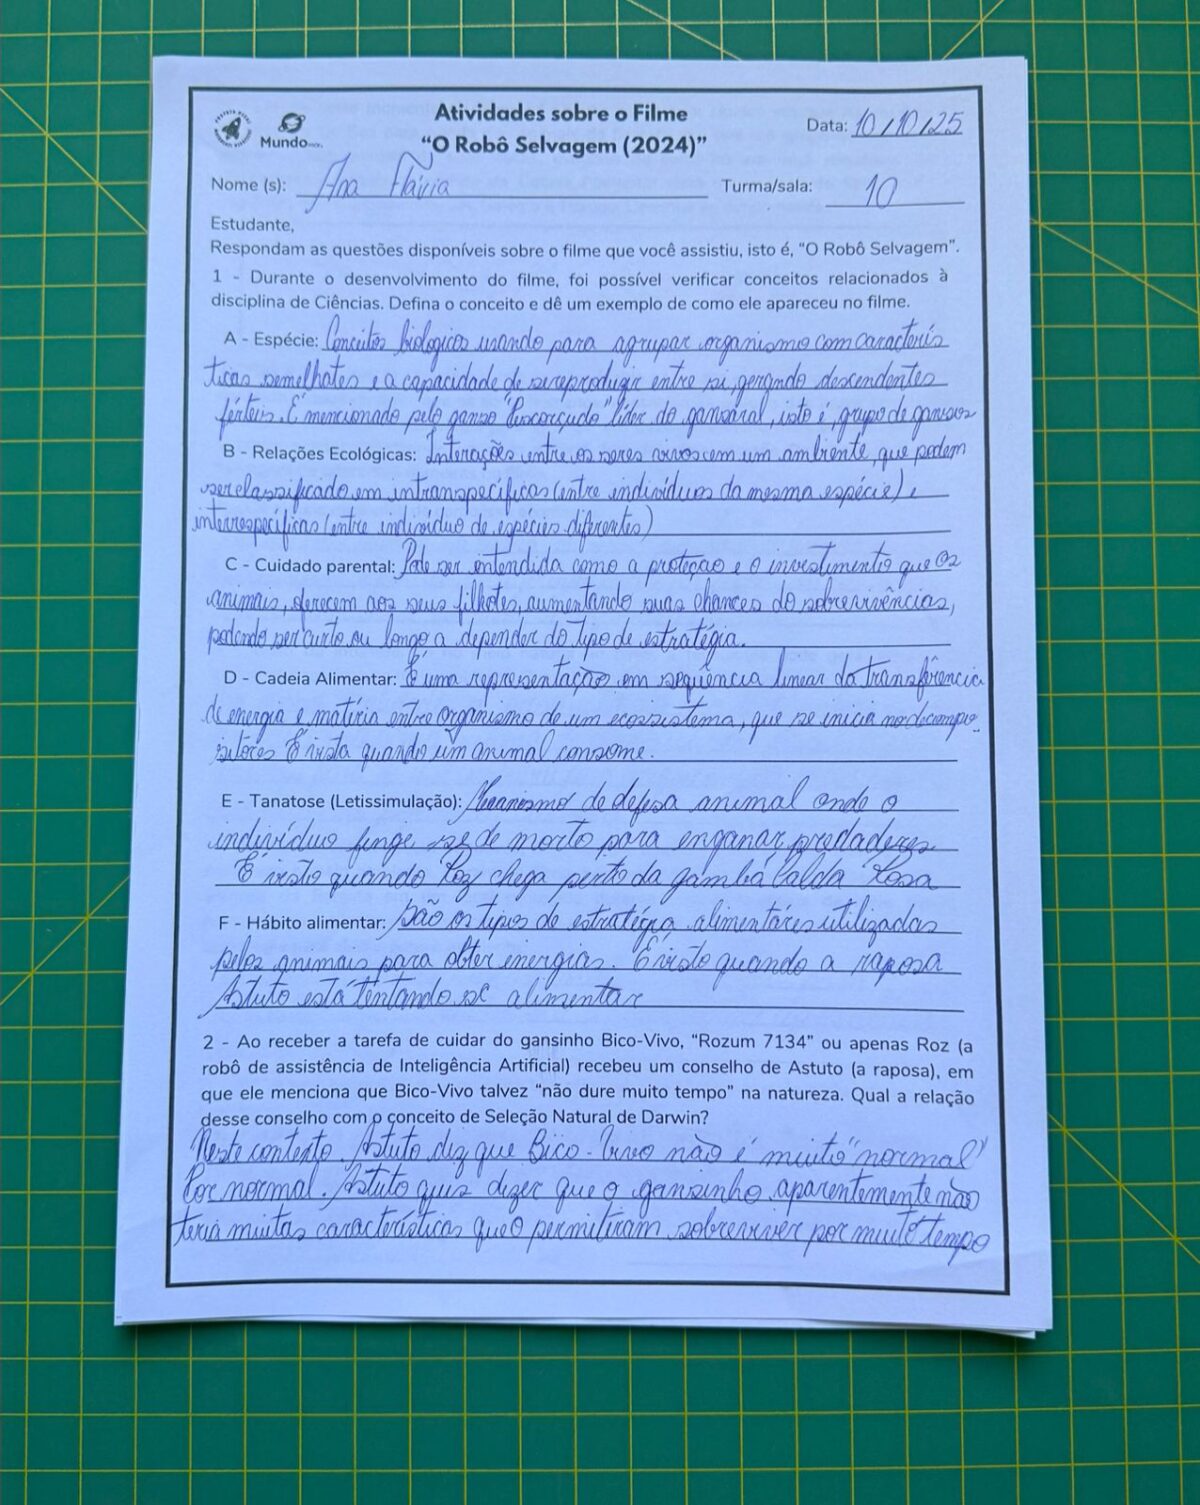 Atividades sobre o Filme
"O Robô Selvagem (2024)"
Data: 10/10/25
Mundo
Nome (s): Ana Flávia Turma/sala: 10
Estudante,
Respondam as questões disponíveis sobre o filme que você assistiu, isto é, "O Robô Selvagem".
1 - Durante o desenvolvimento do filme, foi possível verificar conceitos relacionados à
disciplina de Ciências. Defina o conceito e dê um exemplo de como ele apareceu no filme.
A - Espécie: Conceitos biologicos usando para agrupar organismo com caracterís
ticas semelhates e a capacidade de se reproduzir entre si, gerando descendentes
férteis. É mencionado pelo ganso "Pescorçudo" líder do gansaral, isto é, grupo de gansos
B - Relações Ecológicas: Interações entre os seres vivos em um ambiente, que podem
ser classificado em intraspecíficas (entre indivíduos da mesma espécie) e
interespecíficas (entre indivíduo de espécies diferentes)
C - Cuidado parental: Pode ser entendida como a proteção e o investimento que os
animais, oferecem aos seus filhotes, aumentando suas chances do sobrevivências,
podendo ser curto ou longo a depender do tipo de estratégia.
D - Cadeia Alimentar: É uma representação em sequência linear da transferência
de energia e matéria entre organismo de um ecossistema, que se inicia no decompo-
sitores É vista quando um animal consome.
E - Tanatose (Letissimulação): Mecanismo de defesa animal onde o
indivíduo finge se de morto para enganar predadores
É visto quando Roz chega perto da gambá Calda Rosa
F - Hábito alimentar: São os tipos de estratégia alimentáres utilizadas
pelos animais para obter energias. É visto quando a raposa
Astuto está tentando se alimentar
2 - Ao receber a tarefa de cuidar do gansinho Bico-Vivo, "Rozum 7134" ou apenas Roz (a
robô de assistência de Inteligência Artificial) recebeu um conselho de Astuto (a raposa), em
que ele menciona que Bico-Vivo talvez "não dure muito tempo" na natureza. Qual a relação
desse conselho com o conceito de Seleção Natural de Darwin?
Neste contexto. Astuto diz que Bico-Vivo não é muito "normal"
Por normal. Astuto quis dizer que o gansinho aparentemente não
teria muitas características que o permitiram sobreviver por muito tempo